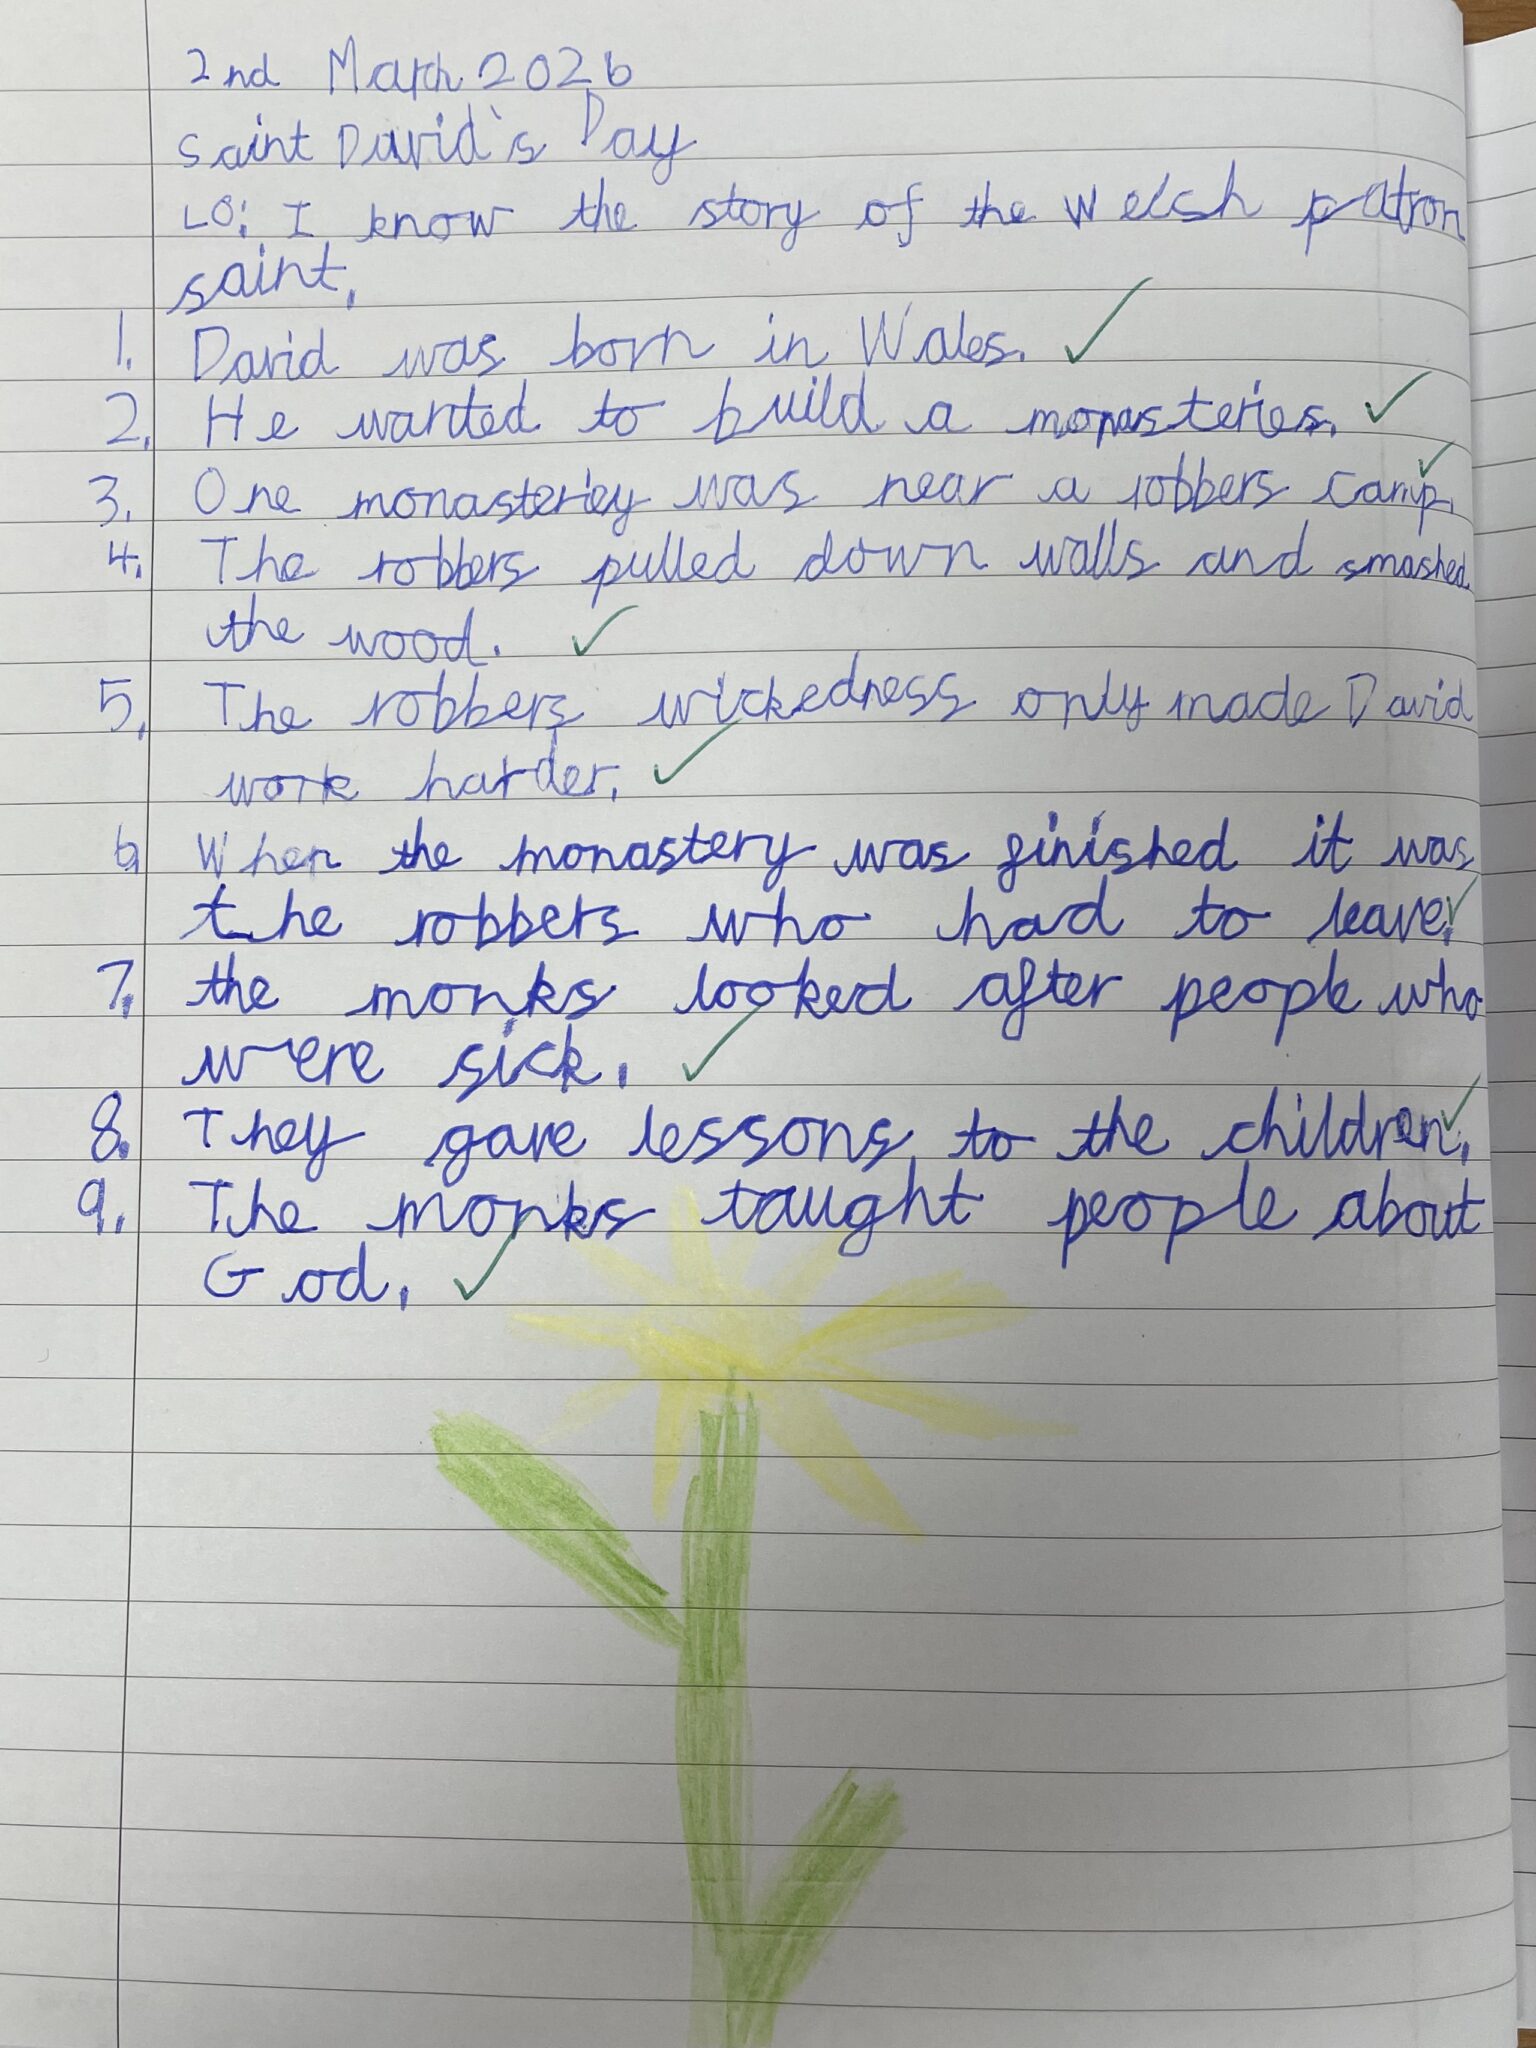 2nd March 2026
Saint David's Day
LO: I know the story of the Welsh patron
saint.
1. David was born in Wales.
2. He wanted to build a monasteries.
3. One monasteriey was near a robbers camp.
4. The robbers pulled down walls and smashed
the wood.
5. The robbers wickedness only made David
work harder.
6. When the monastery was finished it was
the robbers who had to leave.
7. the monks looked after people who
were sick.
8. They gave lessons to the children.
9. The monks taught people about
God.